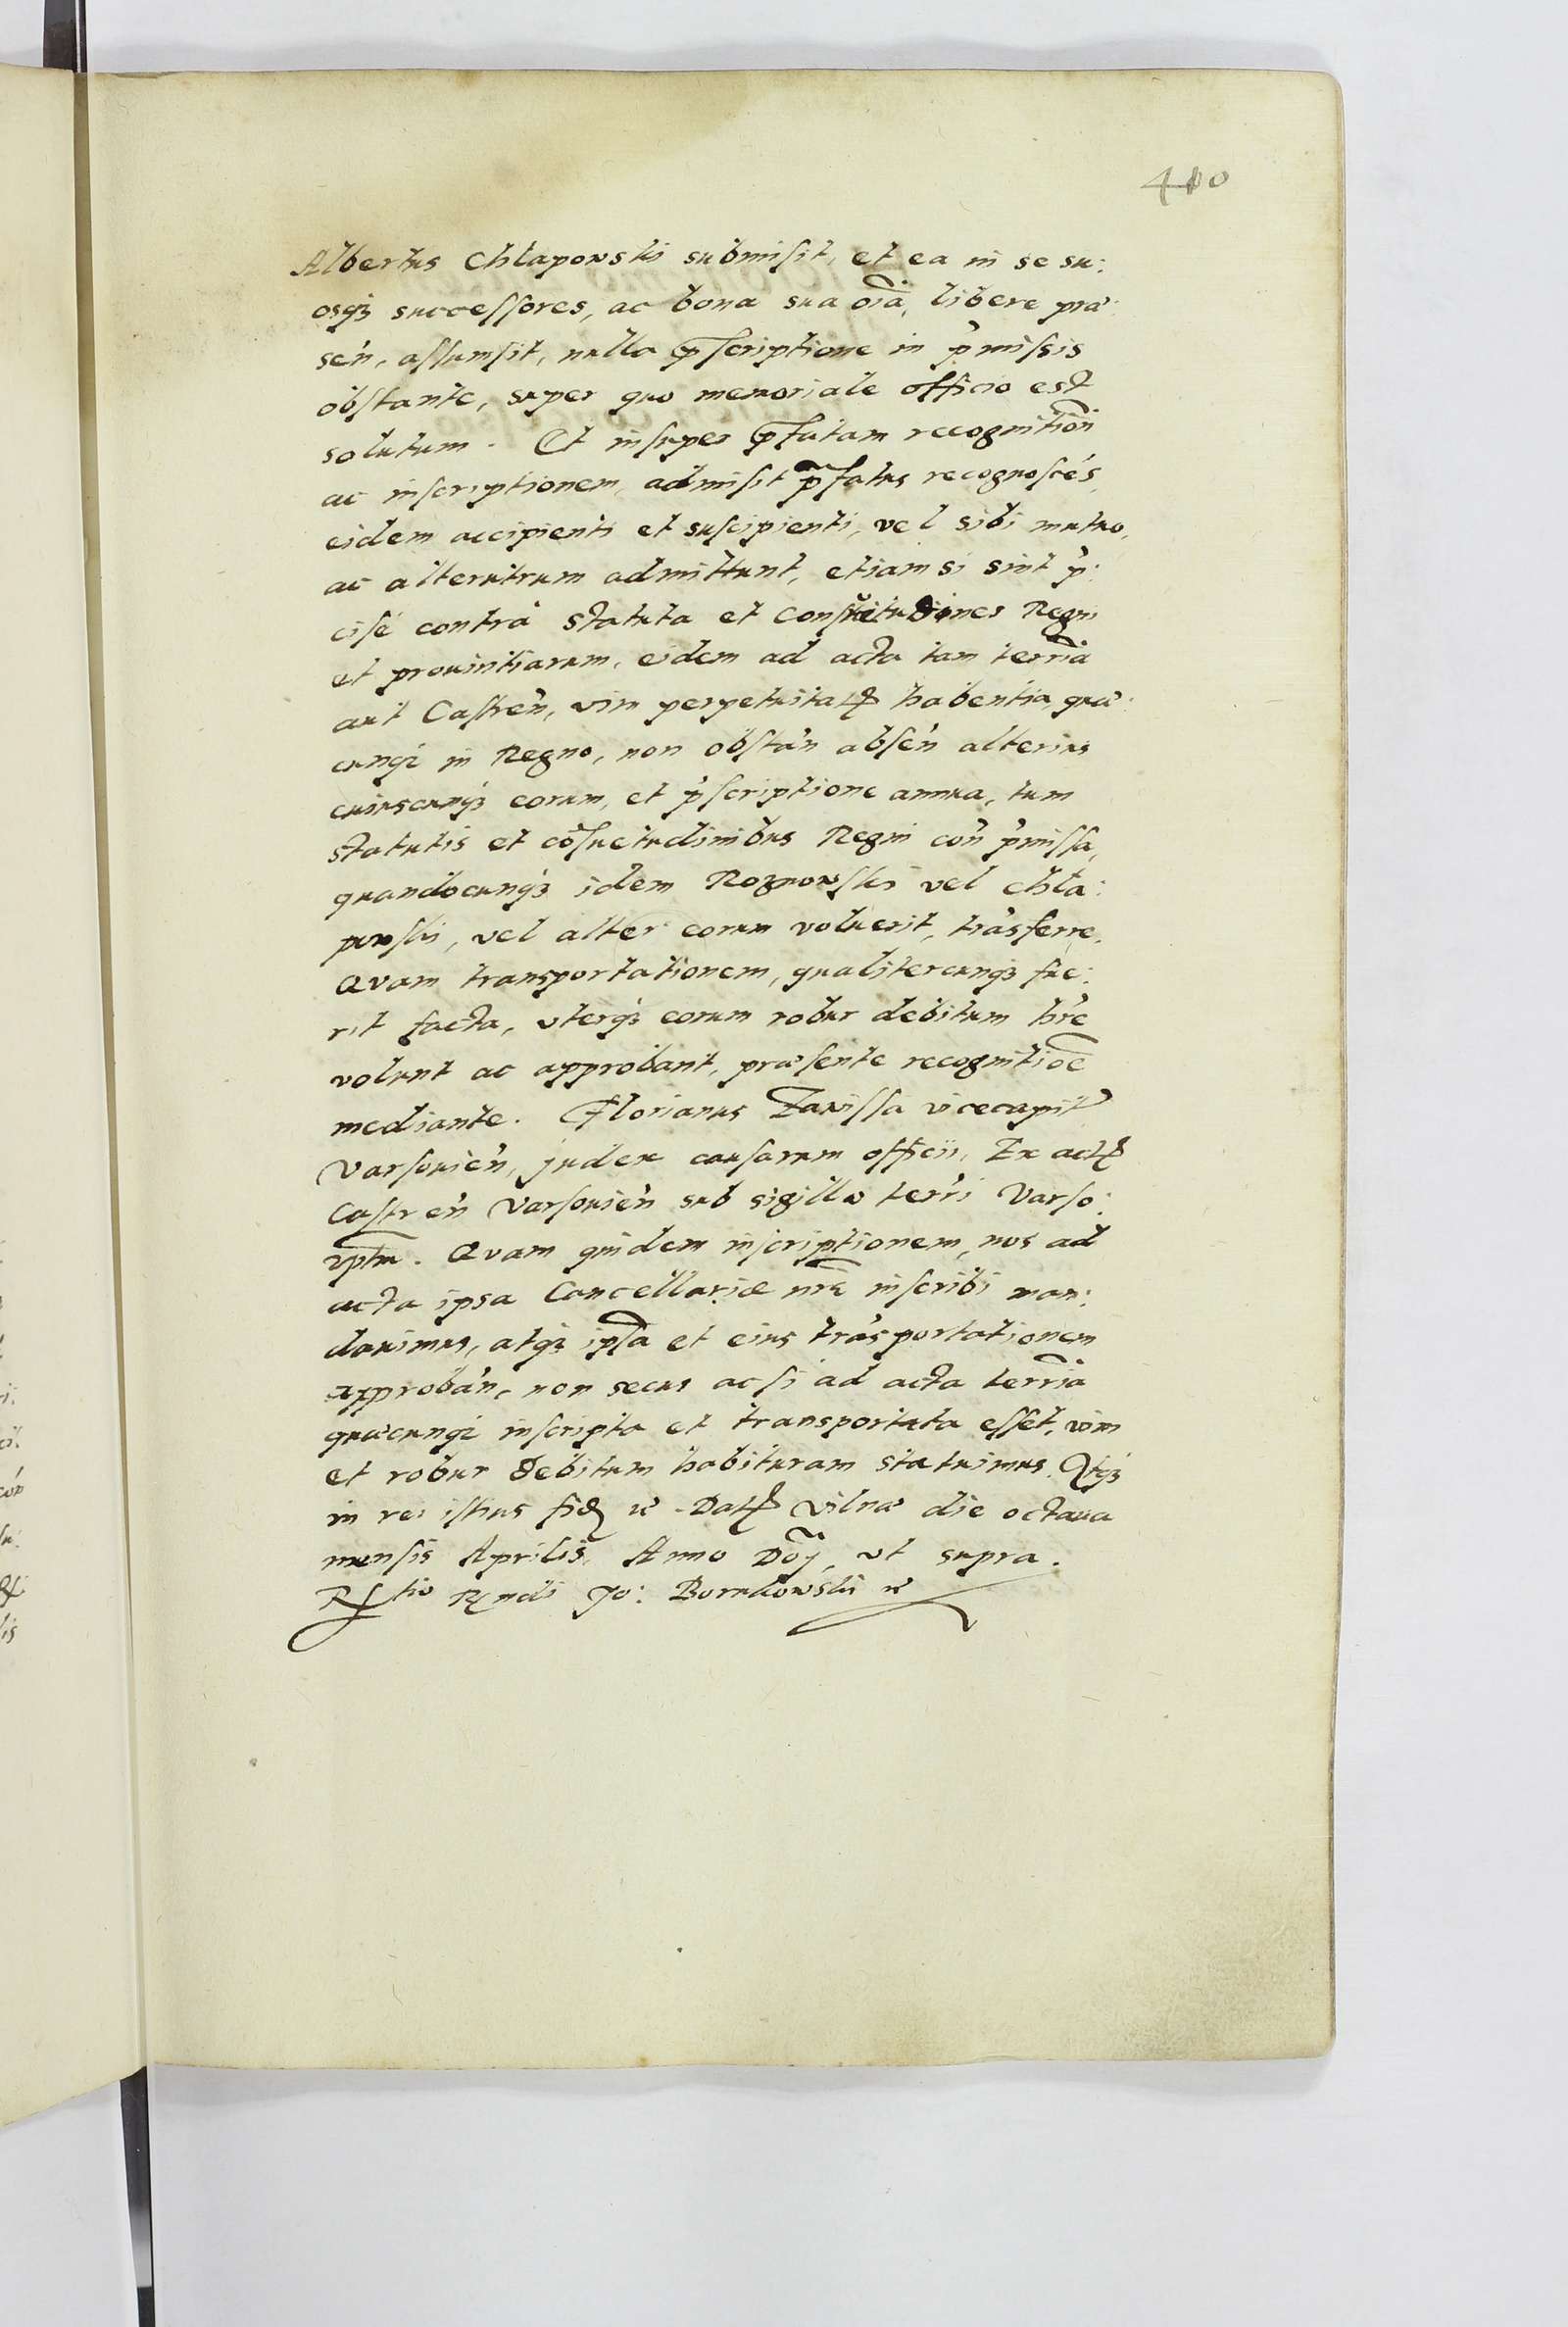 410
Albertus Chlapowski submisit, et ea in se su:
osq₃ successores, ac bona sua oĩa, libere præ:
señ, assumsit, nulla p̃scriptione in p̃missis
obstante, super quo memoriale officio est
solutum. Et insuper p̃fatam recognitioñ
ac inscriptionem, admisit p̃fatus recognoscẽs,
eidem accipienti et suscipienti, vel sibi mutuo,
ac alterutrum admittunt, etiam si sint p̃:
cisé contrà statuta et consuetudines Regni
et prouintiarum, eidem ad acta tam terrña
aut Castreñ, vim perpetuitatꝭ habentia, quæ:
cunq₃ in Regno, non obstañ abseñ alterius
cuiuscunq₃ eorum, et p̃scriptione annua, tum
statutis et cõsuetudinibus Regni coñ p̃missa,
quandocunq₃ idem Roznowski vel Chla:
powski, vel alter eorum voluerit, trãsferre.
Quam transportationem, qualitercunq₃ fue:
rit facta, vterq₃ eorum robur debitum hr̃e
volunt ac approbant, præsente recognitiõe
mediante. Florianus Zawissa vicecapit̃
Varsouieñ, judex causarum officii, Ex actꝭ
Castreñ Varsouieñ sub sigillo terr̃i Varso:
rptm̃. Quam quidem inscriptionem, nos ad
acta ipsa Cancellariæ nr̃æ inscribi man:
dauimus, atq₃ ip̃sa et eius trãsportationem
approbañ, non secus ac si ad acta terrña
quæcunq₃ inscripta et transportata esset, vim
et robur debitum habituram statuimus. Inq₃
in rei istius fidꝭ ꝛc̃ Datꝭ Vilnæ die octaua
mensis Aprilis, Anno Doñj, ut supra.
Rꝭtio Rꝭndi Jo: Borukowski ꝛc̃